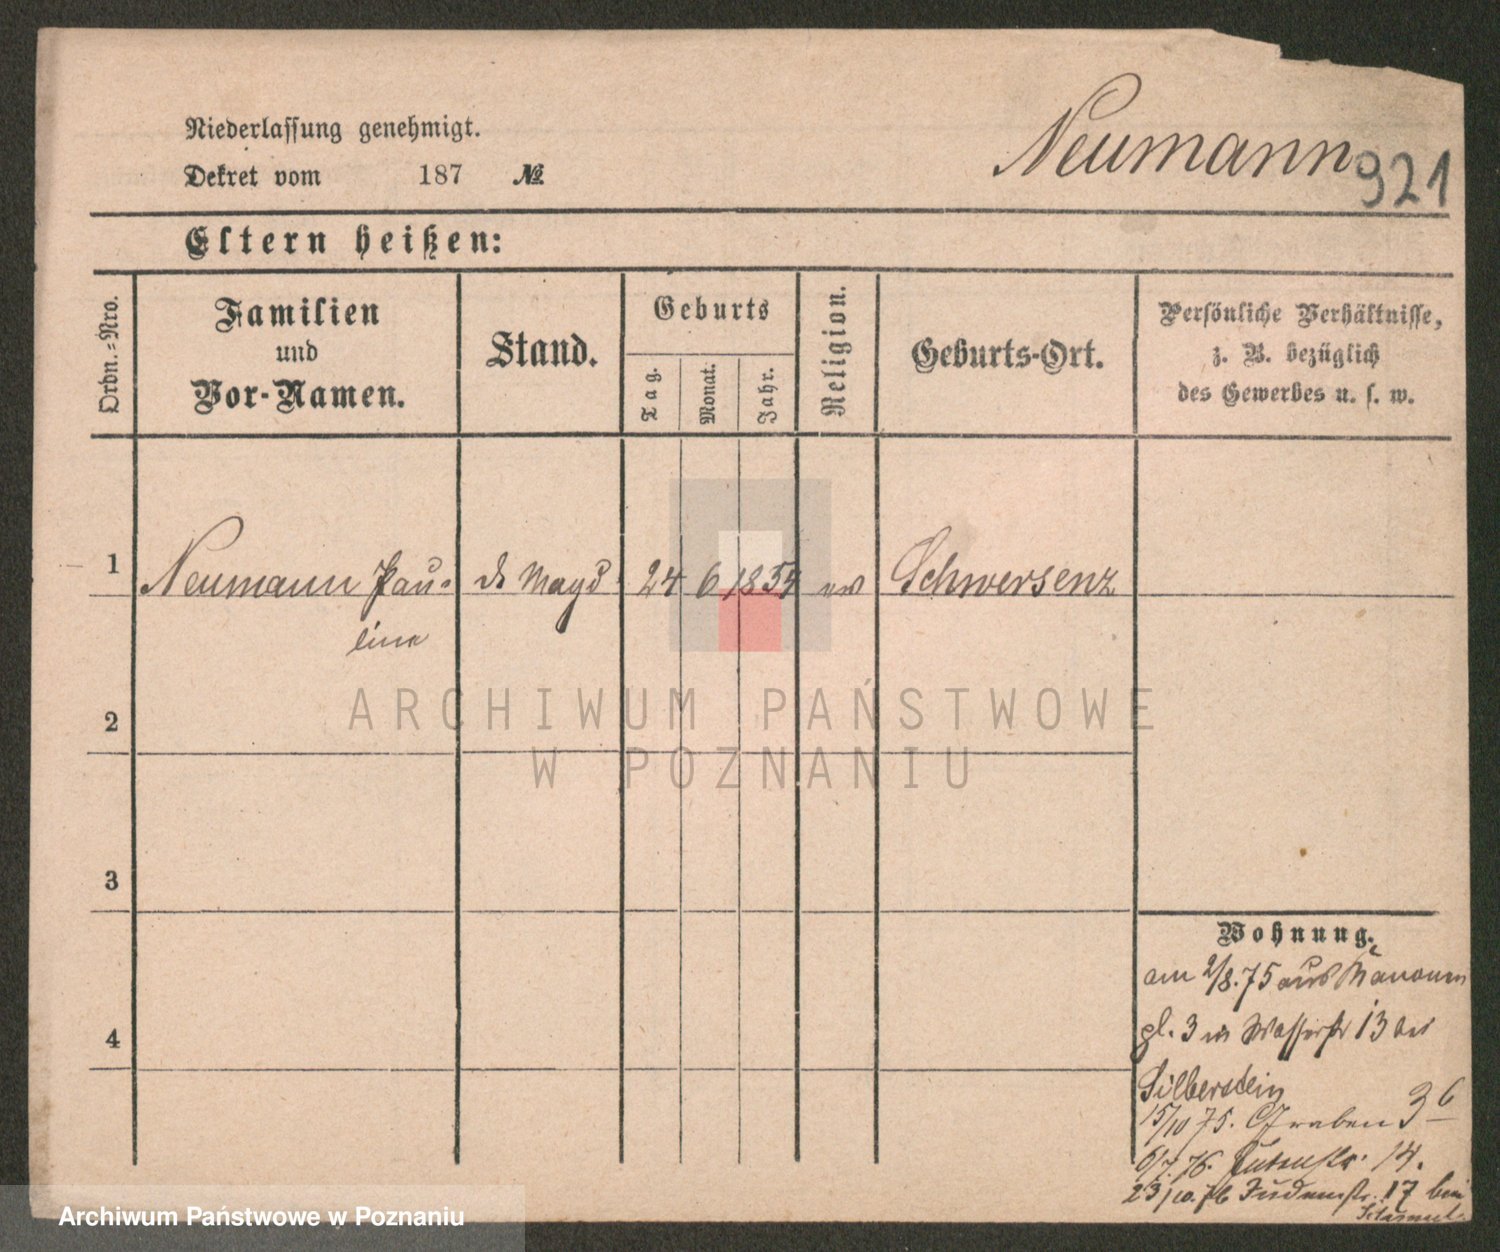 Niederlassung genehmigt.
Dekret vom 187 №
Neumann
921
Eltern heißen:
Ordn.-Nro.
Familien
und
Vor-Namen.
Stand.
Geburts
Tag.
Monat.
Jahr.
Religion.
Geburts-Ort.
Persönliche Verhältnisse,
z. B. bezüglich
des Gewerbes u. s. w.
1
Neumann Pau-
line
Magd
24 6 1854
ev
Schwersenz
2
3
4
ARCHIWUM PAŃSTWOWE
W POZNANIU
Wohnung.
am 2/8.75 aus Kanonen
pl. 3 in Wasserstr 13 bei
Silberstein
15/10 75. Graben 36
6/7.76. Judenstr. 14.
23/10.76 Judenstr. 17 bei
Archiwum Państwowe w Poznaniu